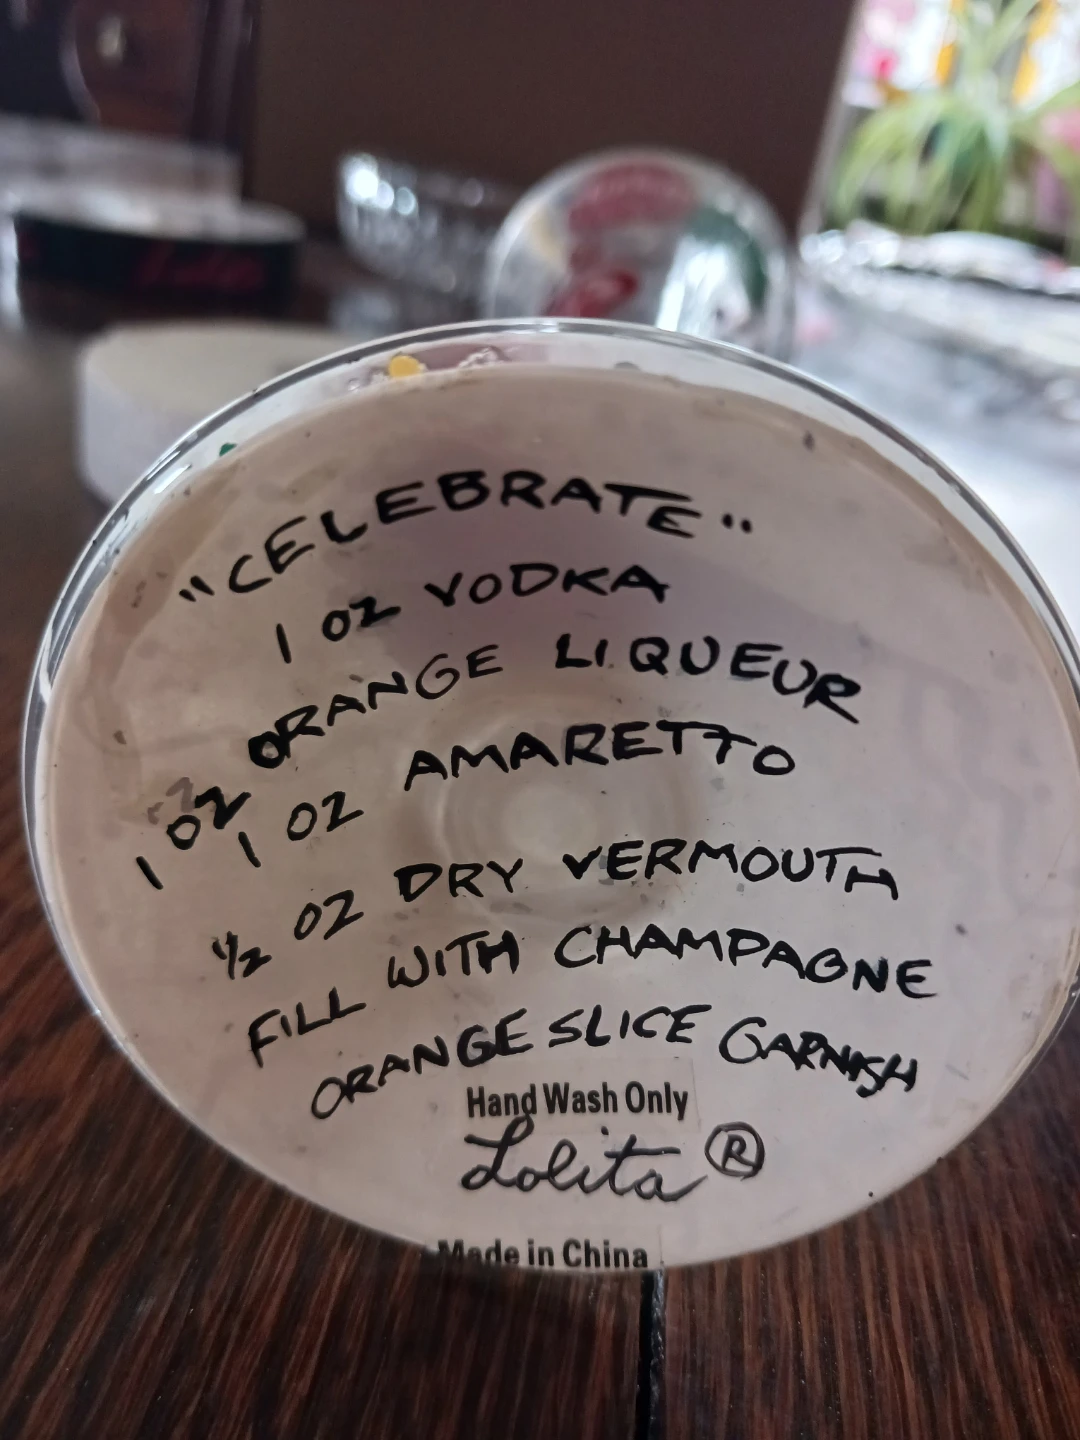 "CELEBRATE"
1 OZ VODKA
1 OZ ORANGE LIQUEUR
1 OZ AMARETTO
1/2 OZ DRY VERMOUTH
FILL WITH CHAMPAGNE
ORANGE SLICE GARNISH
Hand Wash Only
Lolita ®
Made in China